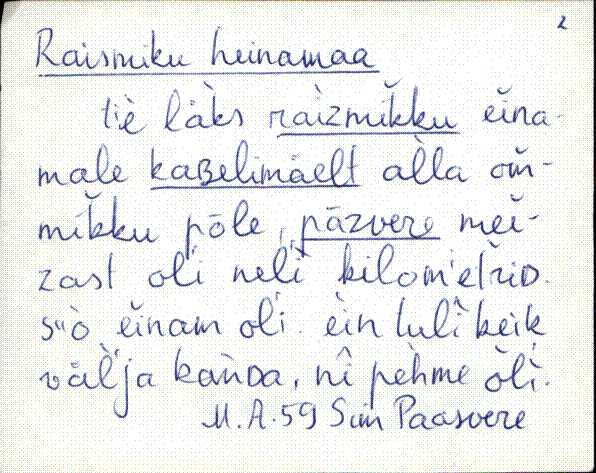 2
Raismiku heinamaa
tiè làks raìzmĭkku eĭna-
male kaʙelimäelt al̀la om̆-
mĭkku pōle, pāzvere meĭ-
zast oĺi nelì kilom'etŕiᴅ.
sùò eĭnam oĺi. èin tulì keik
väl̀ja kan̆ᴅa, nî pèhme òlì.
M.A.59 Sim Paasvere